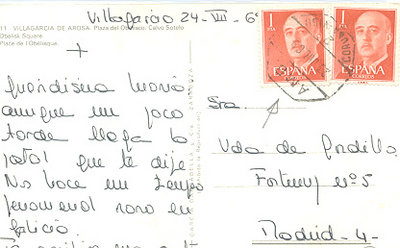 Villagarcia 24-VIII-6
11 VILLAGARCIA DE AROSA. Plaza del Obelisco. Calvo Sotelo
Obelisk Square
Place de l'Obelisque
+
Queridisima Maria
aunque un poco
tarde llega la
postal que te dije
Nos hace un tiempo
fenomenal raro en
galicia.
Sra.
Vda de Gordillo
Fortuny nº 5
Madrid-4-
1
PTA
ESPAÑA
CORREOS
1
PTA
ESPAÑA
CORREOS